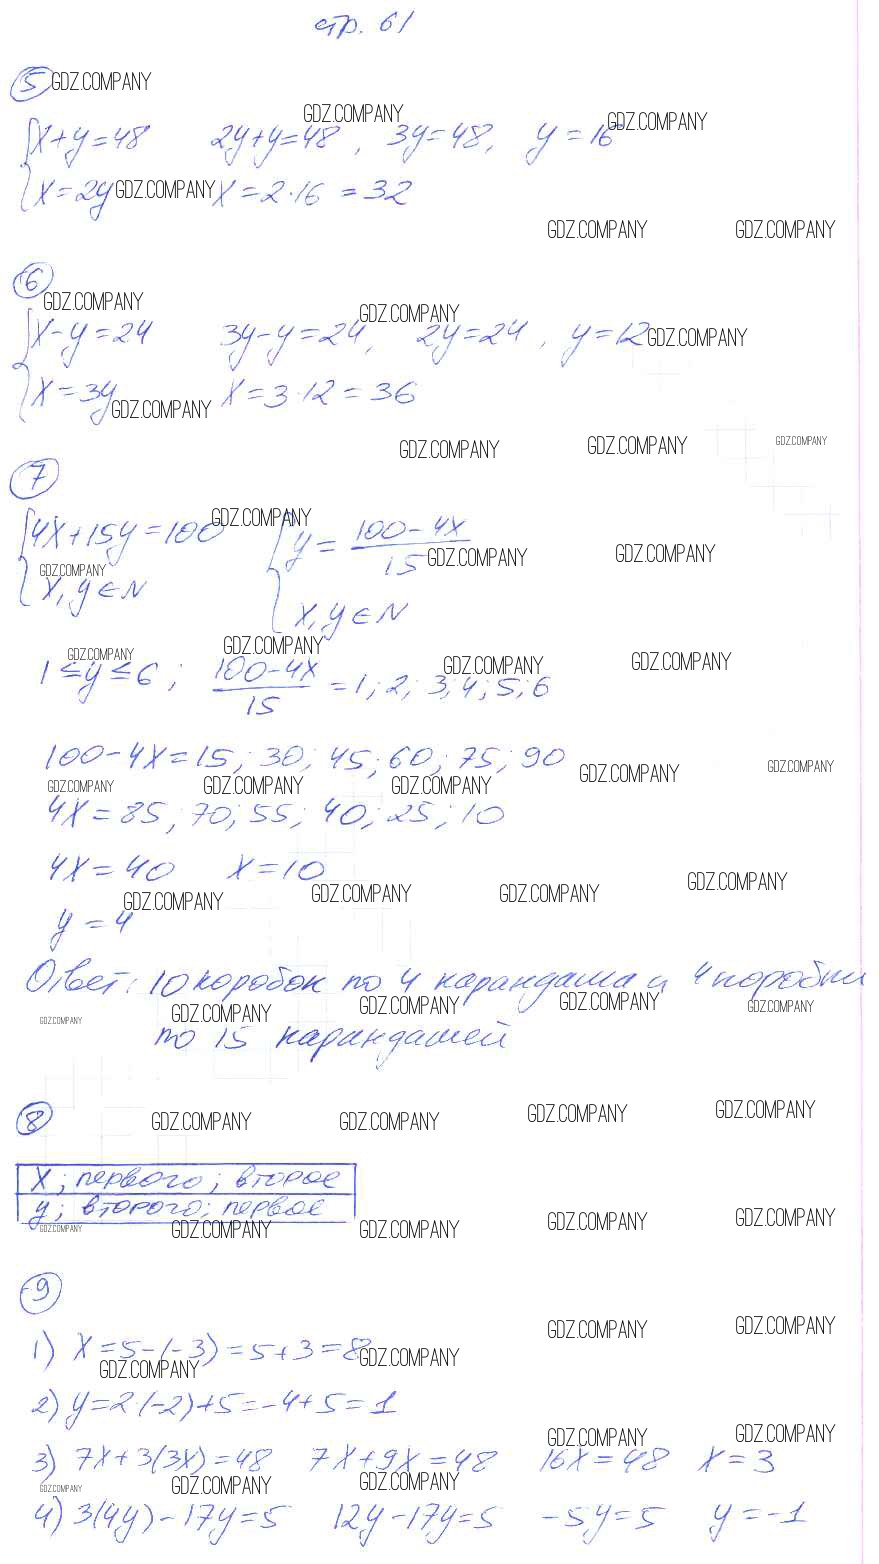 стр. 61
5 GDZ.COMPANY
GDZ.COMPANY GDZ.COMPANY
x+y=48 2y+y=48, 3y=48, y=16
x=2y GDZ.COMPANY x=2·16=32
GDZ.COMPANY GDZ.COMPANY
6
GDZ.COMPANY GDZ.COMPANY
x-y=24 3y-y=24, 2y=24, y=12 GDZ.COMPANY
x=3y GDZ.COMPANY x=3·12=36
GDZ.COMPANY GDZ.COMPANY GDZ.COMPANY
7
GDZ.COMPANY
4x+15y=100 y=(100-4x)/15
GDZ.COMPANY GDZ.COMPANY GDZ.COMPANY
x, y∈N x, y∈N
GDZ.COMPANY GDZ.COMPANY GDZ.COMPANY GDZ.COMPANY
1≤y≤6; (100-4x)/15=1; 2; 3; 4; 5; 6
100-4x=15; 30; 45; 60; 75; 90
GDZ.COMPANY GDZ.COMPANY GDZ.COMPANY GDZ.COMPANY GDZ.COMPANY
4x=85; 70; 55; 40; 25; 10
4x=40 x=10
GDZ.COMPANY GDZ.COMPANY GDZ.COMPANY GDZ.COMPANY
y=4
Ответ: 10 коробок по 4 карандаша и 4 коробки
GDZ.COMPANY GDZ.COMPANY GDZ.COMPANY GDZ.COMPANY GDZ.COMPANY
по 15 карандашей
8 GDZ.COMPANY GDZ.COMPANY GDZ.COMPANY GDZ.COMPANY
x; первого; второе
y; второго; первое
GDZ.COMPANY GDZ.COMPANY GDZ.COMPANY GDZ.COMPANY GDZ.COMPANY
9
GDZ.COMPANY GDZ.COMPANY
1) x=5-(-3)=5+3=8
GDZ.COMPANY GDZ.COMPANY
2) y=2(-2)+5=-4+5=1
GDZ.COMPANY GDZ.COMPANY
3) 7x+3(3x)=48 7x+9x=48 16x=48 x=3
GDZ.COMPANY GDZ.COMPANY GDZ.COMPANY
4) 3(4y)-17y=5 12y-17y=5 -5y=5 y=-1